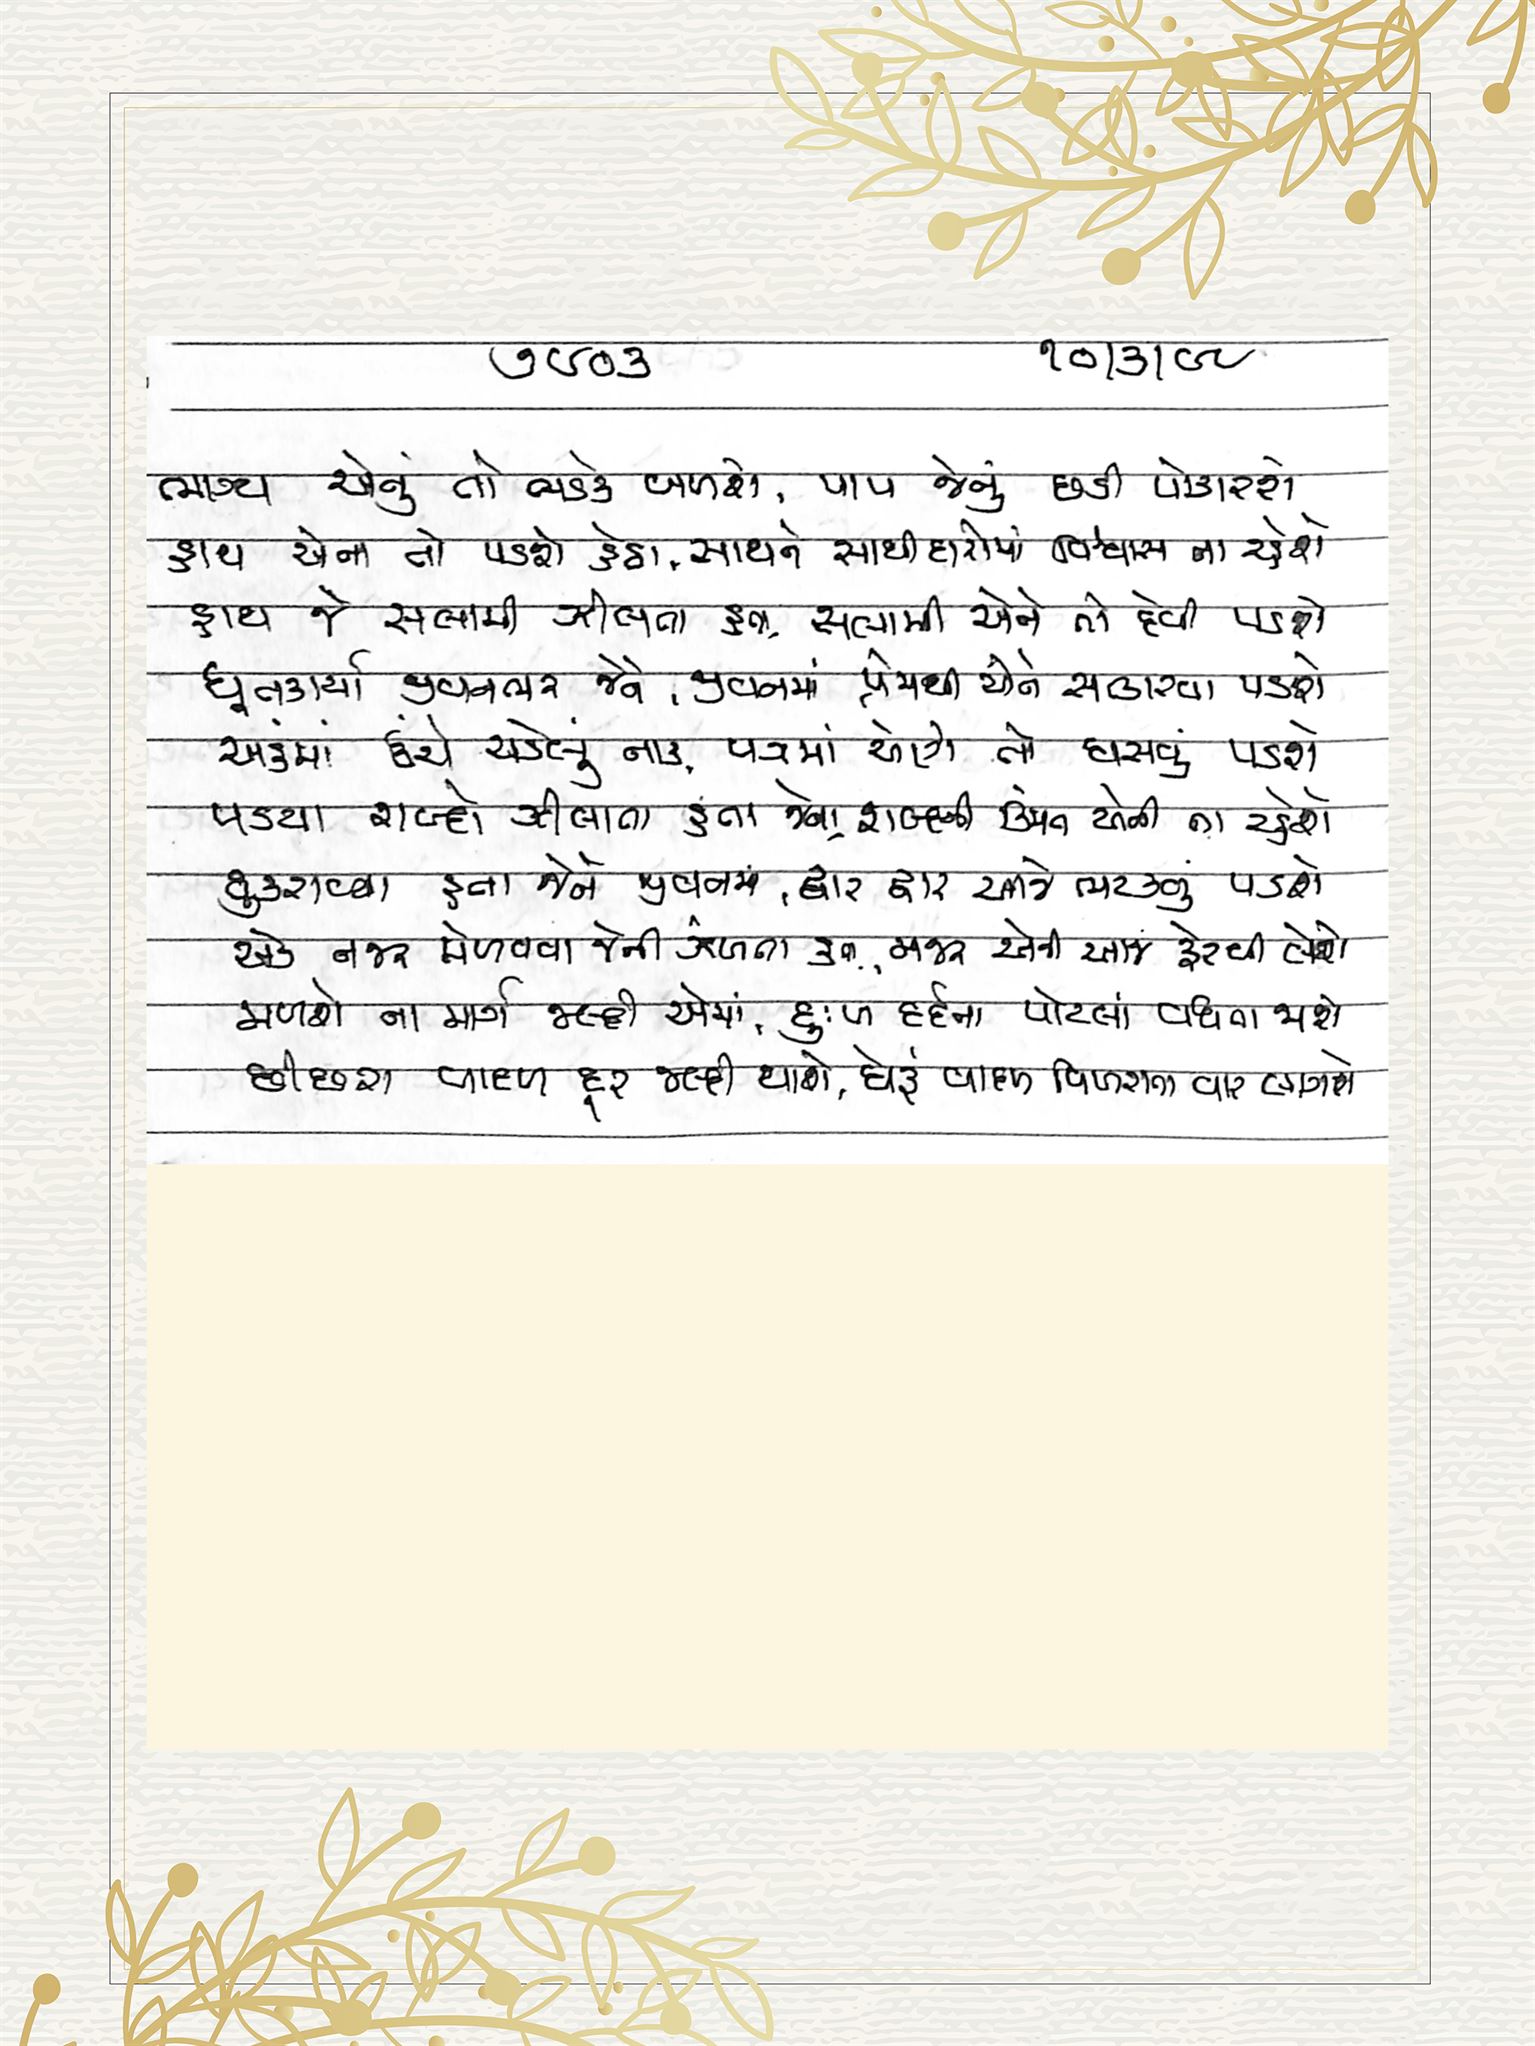 ૭૯૦૩ ૧૦/૩/૯૯
ભાગ્ય એનું તો ભડકે બળશે, પાપ જેનું છડી પોકારશે
હાથ એના તો પડશે હેઠા, સાથને સાથીદારોમાં વિશ્વાસ ના રહેશે
હાથ જે સલામી ઝીલતા હતા, સલામી એને તો દેવી પડશે
ધૂતકાર્યા જીવનભર જેને, જીવનમાં પ્રેમથી એને સત્કારવા પડશે
અહંમાં ઊંચે ચડેલું નાક, પળમાં એણે તો ઘસવું પડશે
પડયા શબ્દો ઝીલાતા હતા જેના, શબ્દની કિંમત એની ના રહેશે
ઠુકરાવ્યા હતા જેને જીવનમાં, દ્વાર દ્વાર આજે ભટકવું પડશે
એક નજર મેળવવા જેની ઝંખતા હતા, નજર એની આજ ફેરવી લેશે
મળશે ના માર્ગ જલ્દી એમાં, દુઃખ દર્દના પોટલાં વધતા જાશે
છીછરા વાદળ દૂર જલ્દી થાશે, ઘેરું વાદળ વિખરાતા વાર લાગશે